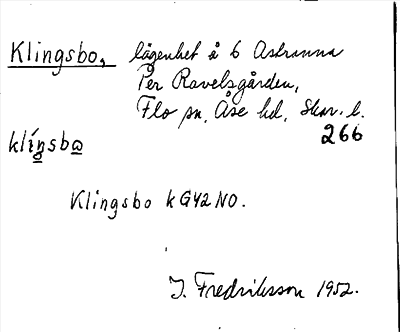 Klingsbo, lägenhet å 6 Astranna
Per Ravelsgården,
Flo sn, Åse hd, Skar. l.
266
klíŋsbω
Klingsbo kGV2NO.
J. Fredriksson 1952.